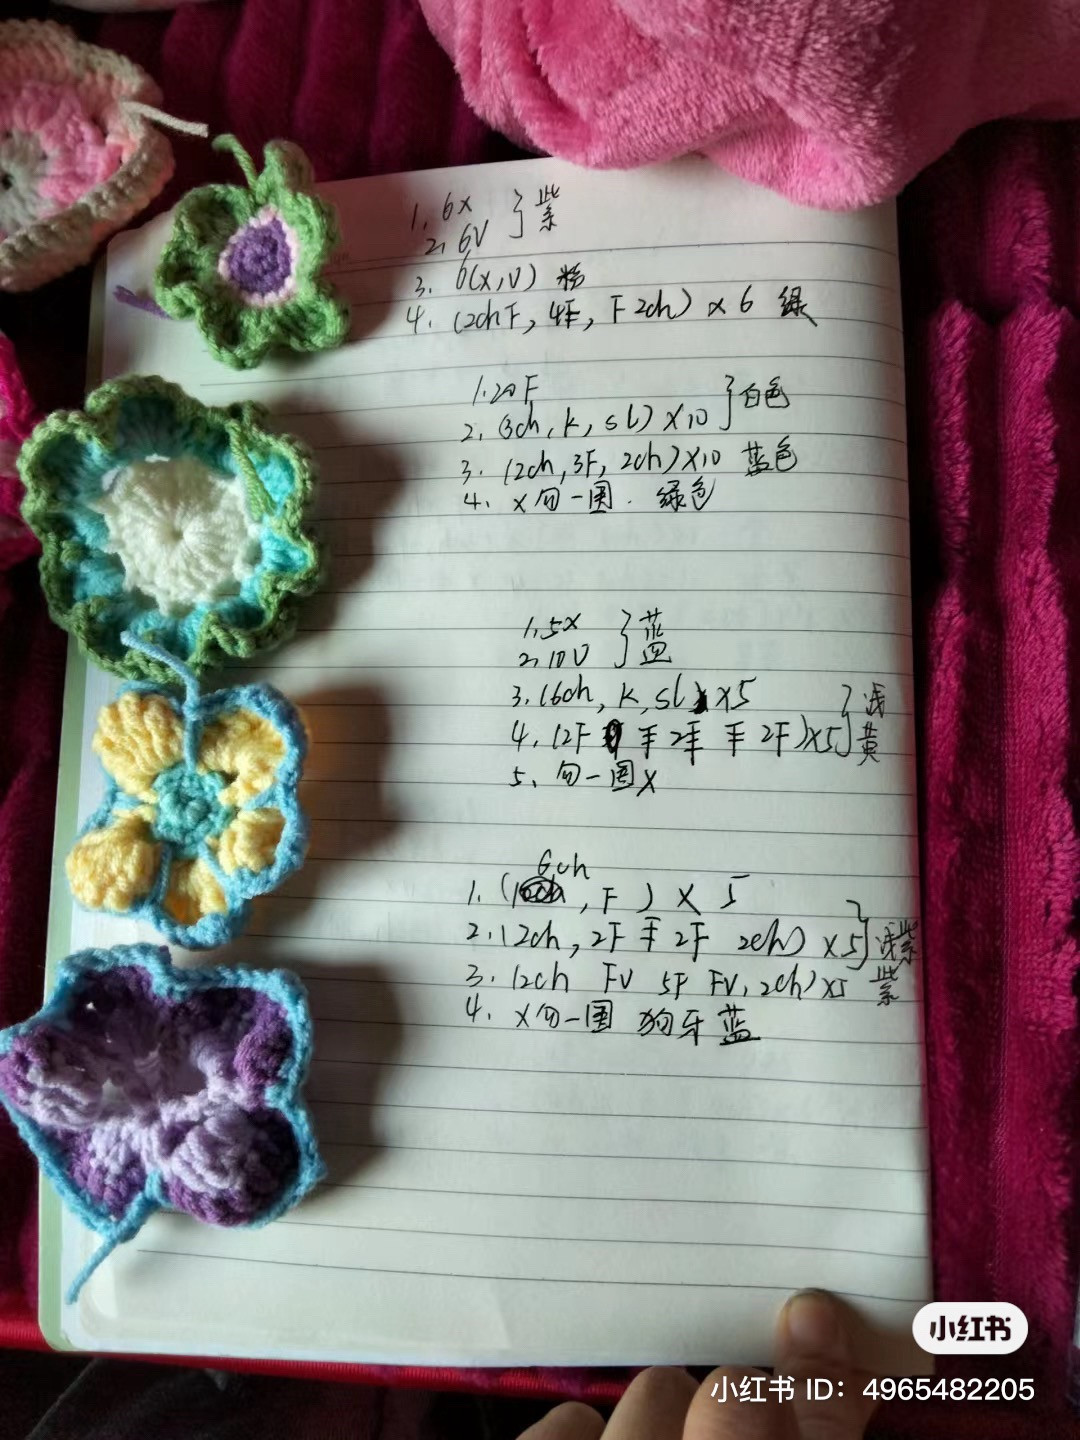 1. 6x
2. 6V } 紫
3. 6(x,V) 粉
4. (2chF, 4F, F2ch) x6 绿
1. 20F
2. (3ch, k, sl) x10 } 白色
3. (2ch, 3F, 2ch) x10 蓝色
4. x勾一圈. 绿色
1. 5x
2. 10V } 蓝
3. (6ch, k, sl) x5
4. (2F 2 2F) x5 } 浅黄
5. 勾一圈x
6ch
1. ( , F) x 5
2. (2ch, 2F 2F 2ch) x5 } 浅紫
3. (2ch FV 5F FV, 2ch) x5 紫
4. x勾一圈 狗牙 蓝
小红书
小红书 ID: 4965482205